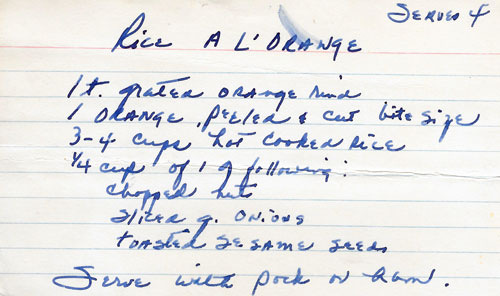 Serves 4
Rice A L'Orange
1 t. grated orange rind
1 orange, peeled & cut bite size
3-4 cups hot cooked rice
1/4 cup of 1 of following:
chopped nuts
sliced g. onions
toasted sesame seeds
Serve with pork or ham.